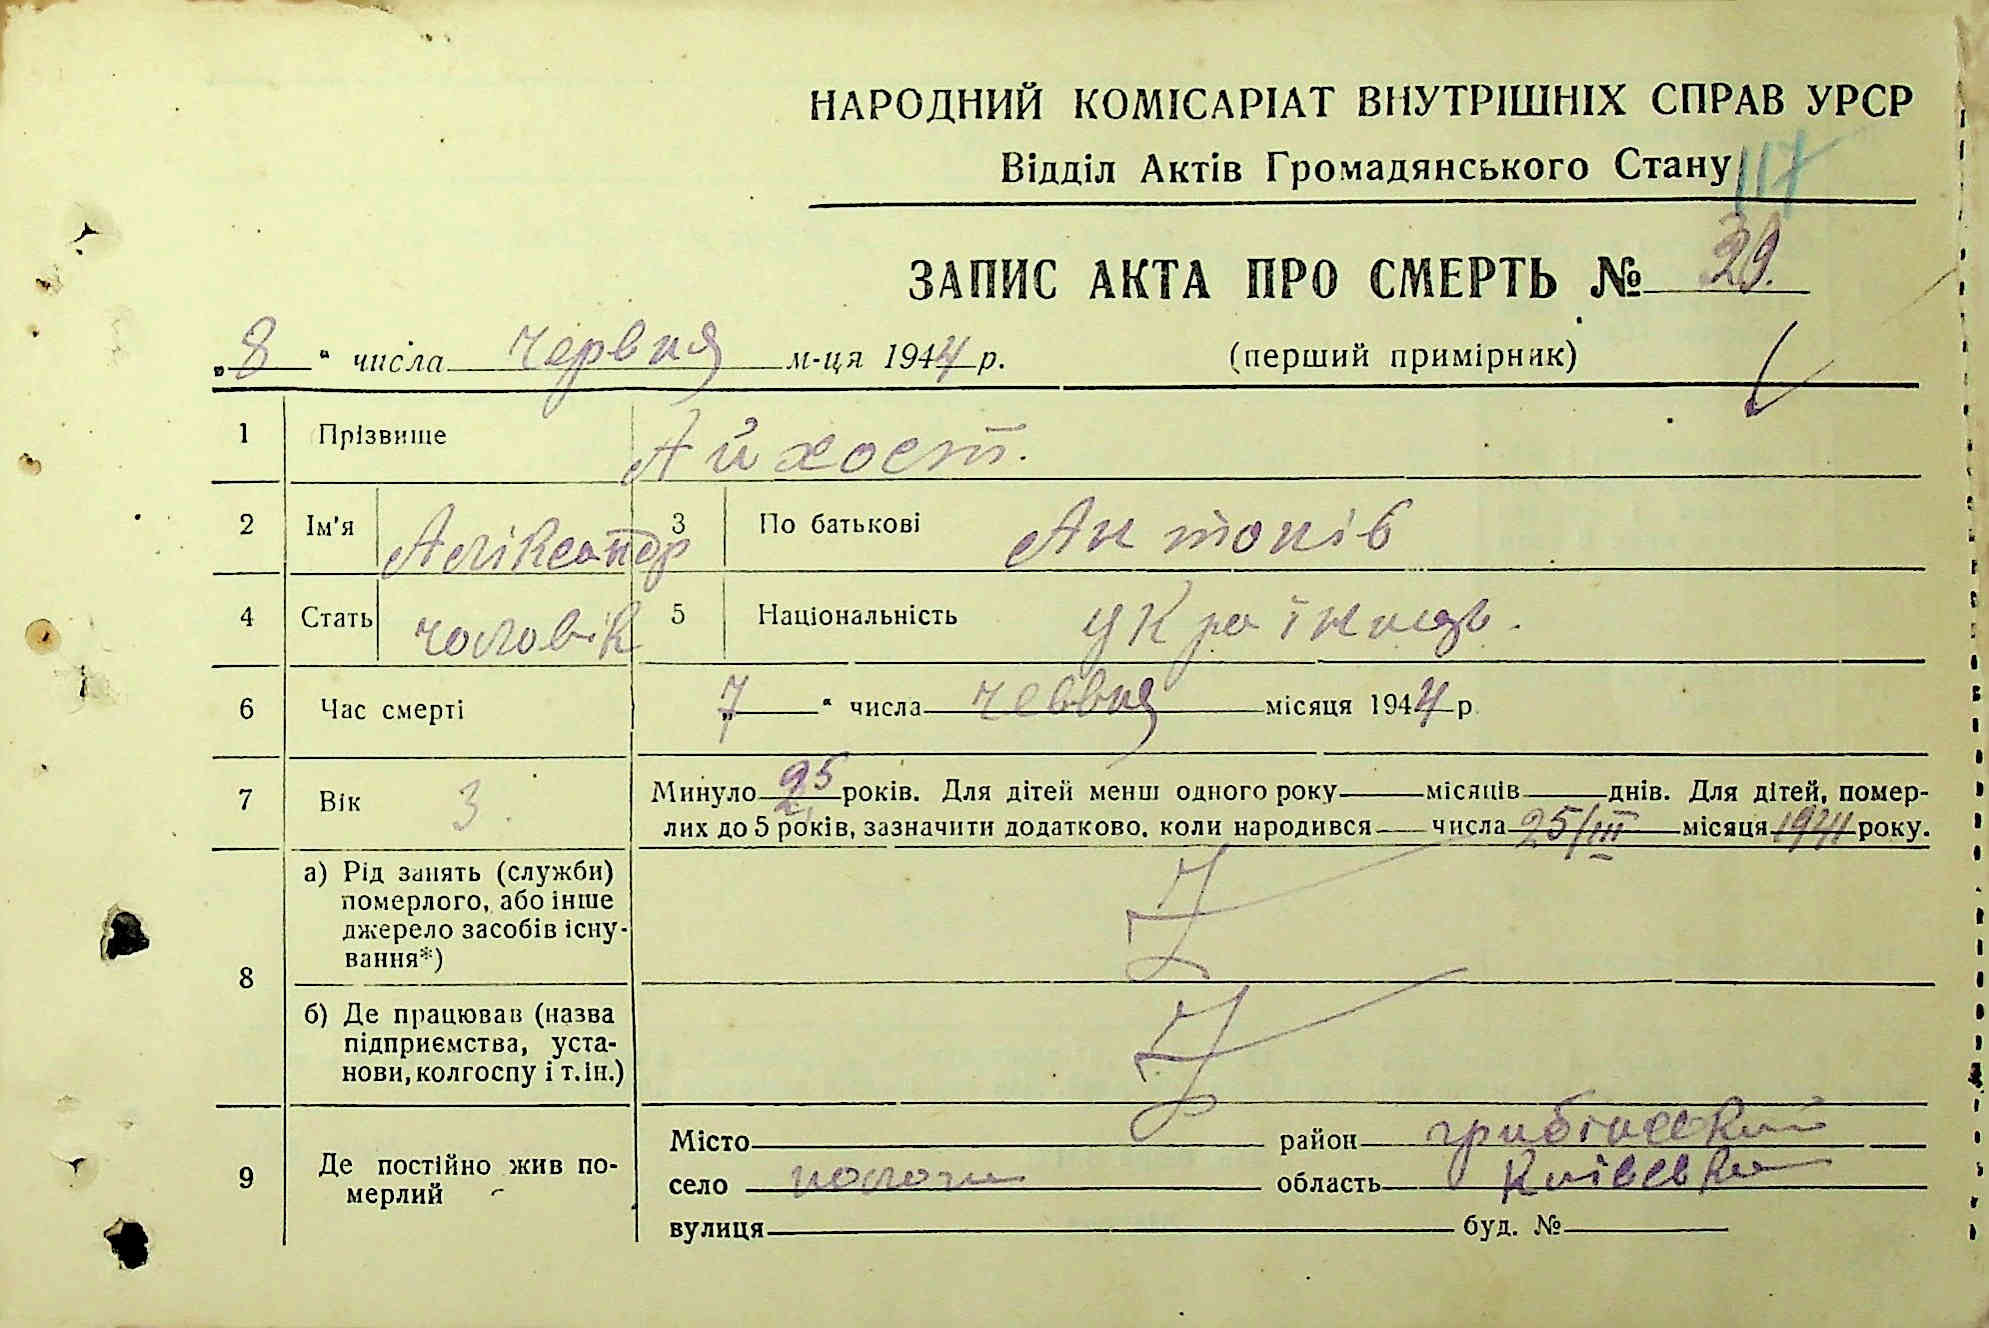 НАРОДНИЙ КОМІСАРІАТ ВНУТРІШНІХ СПРАВ УРСР
Відділ Актів Громадянського Стану
117
ЗАПИС АКТА ПРО СМЕРТЬ №
„8“ числа червня м-ця 1944 р. (перший примірник)
1 Прізвище Айхост.
2 Ім'я Аліксандр 3 По батькові Антонів
4 Стать чоловік 5 Національність українець.
6 Час смерті „7“ числа червня місяця 1944 р.
7 Вік 3. Минуло років. Для дітей менш одного року місяців днів. Для дітей, помер-
лих до 5 років, зазначити додатково, коли народився числа 25/III місяця 1941 року.
8 а) Рід занять (служби)
померлого, або інше
джерело засобів існу-
вання*)
б) Де працював (назва
підприємства, уста-
нови, колгоспу і т. ін.)
9 Де постійно жив по-
мерлий
Місто район
село область Київська
вулиця буд. №